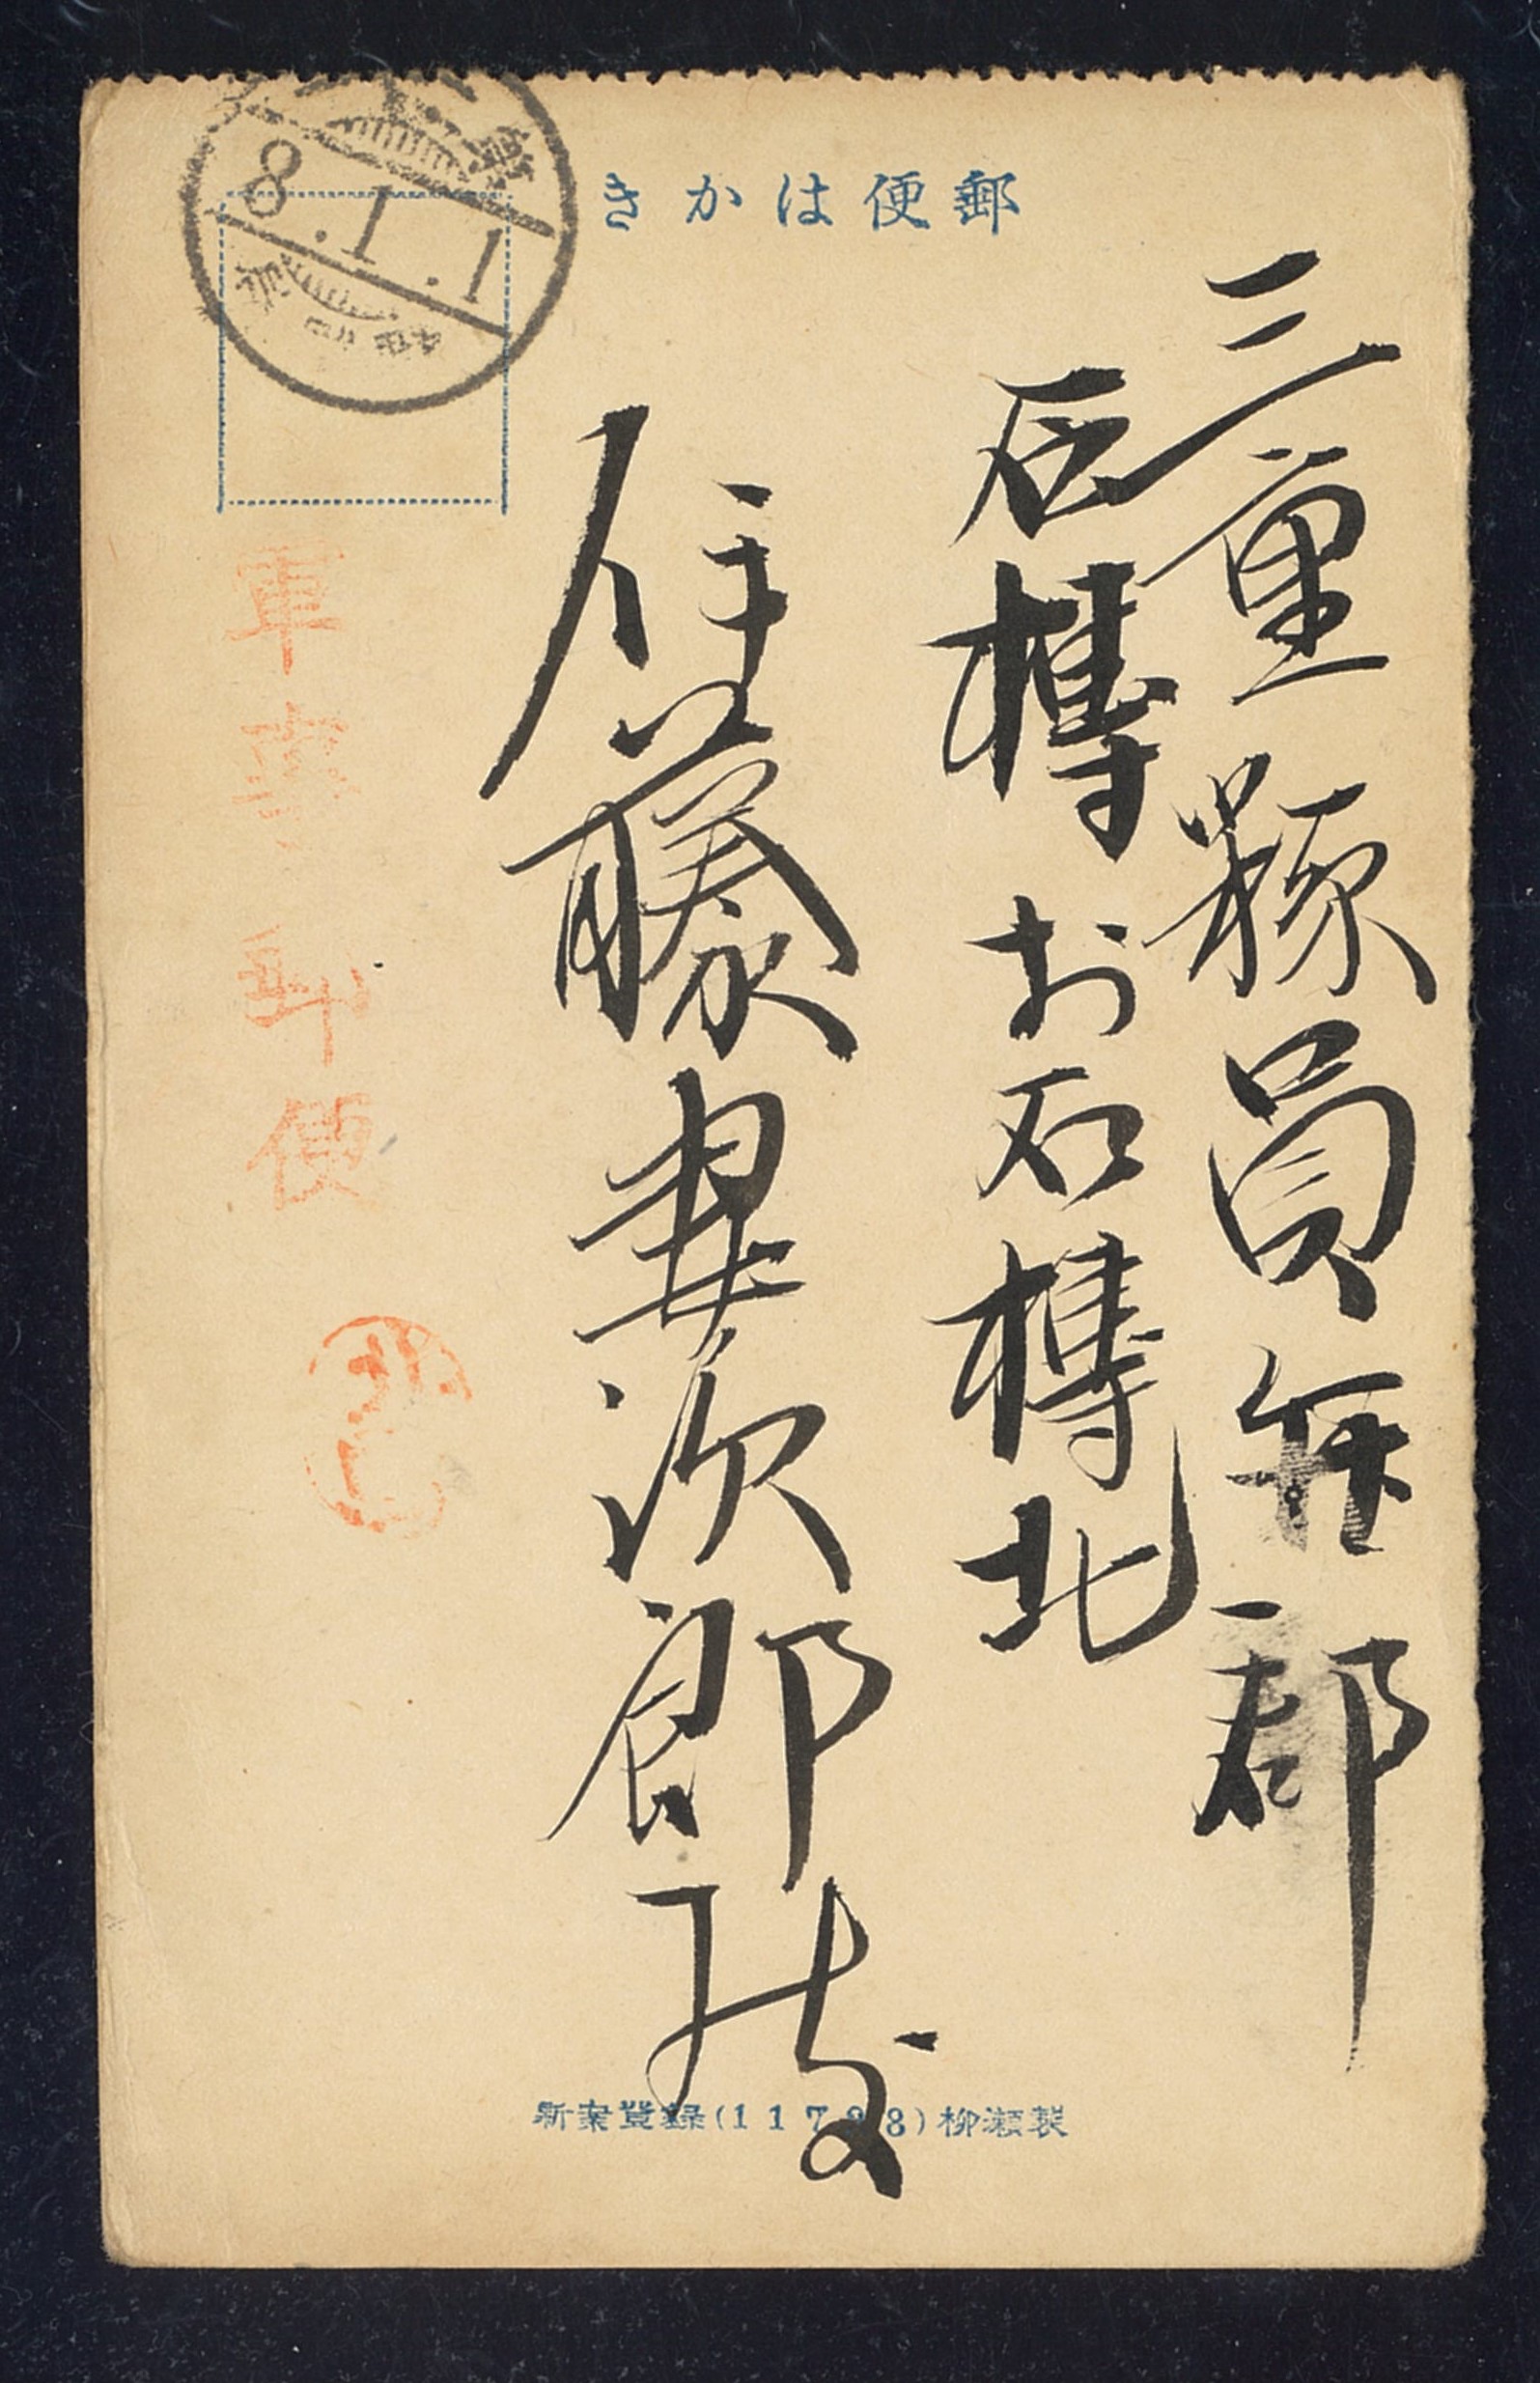 郵便はかき
8.1.1
三重縣員弁郡
石榑村石榑北
伊藤㐮次郎殿
軍事郵便
新案登録(11728)柳瀬製